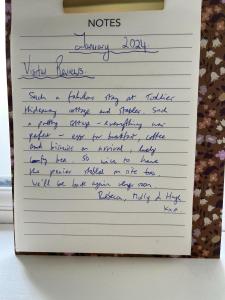 NOTES
January 2024
Visitor Reviews
Such a fabulous stay at
Hideaway cottage and stables. Such
a pretty cottage - everything was
perfect - eggs for breakfast, coffee
and biscuits on arrival, lovely
comfy bed. So nice to have
the ponies stabled on site too.
We'll be back again very soon
Rebecca, Molly & Hugh